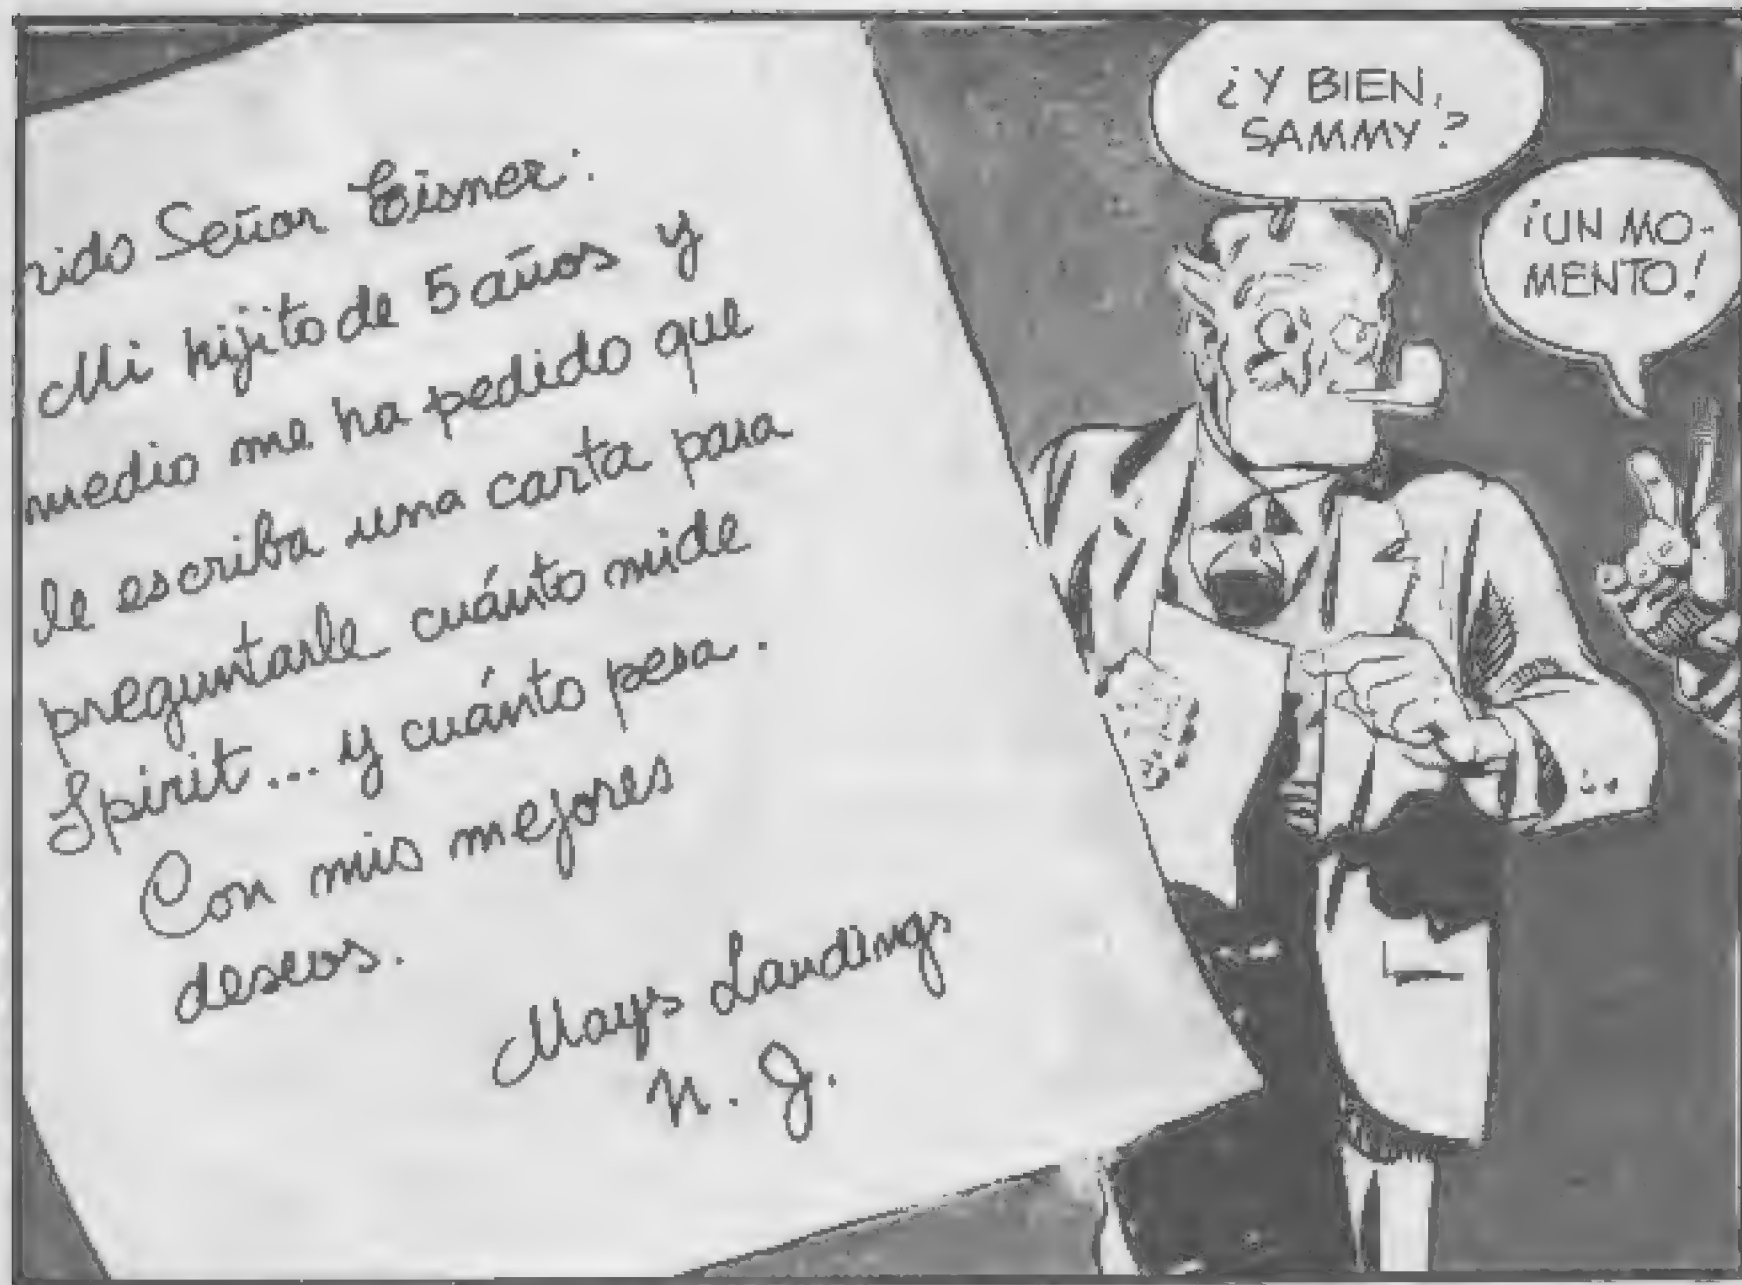 rido Señor Eisner:
Mi hijito de 5 años y
medio me ha pedido que
le escriba una carta para
preguntarle cuánto mide
Spirit... y cuánto pesa.
Con mis mejores
deseos.
Mays Landings
N. J.
¿Y BIEN,
SAMMY?
¡UN MO-
MENTO!